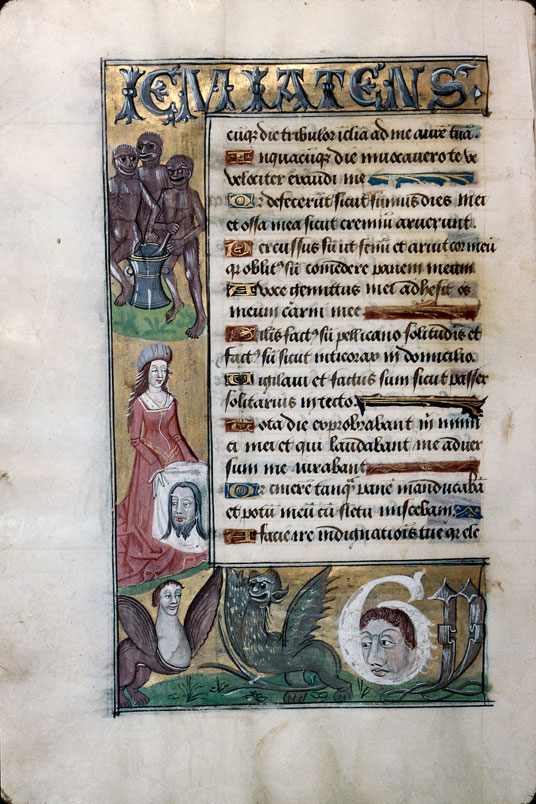 IEM IATENS
cūq die tribulor īclīa ad me aurē tuā.
In quacūq die īnuocauero te ve
velociter exaudi me
Qr defecerūt sicut fumus dies mei
et ossa mea sicut cremiū aruerunt.
Percussus sū ut fenū et aruit cor meū
qr oblitꝰ sū comedere panem meum
A voce gemitus mei adhesit os
meum carni mee
Silis factꝰ sū pellicano solitudīs et
factꝰ sū sicut nicticorax in domicilio.
Vigilaui et factus sum sicut passer
solitarius in tecto.
Tota die exprobrabant m̄ inimi
ci mei et qui laudabant me aduer
sum me iurabant
Qr cinere tanq̄ panē manducabā
et potum meū cū fletu miscebam.
A facie ire indignationis tue qr ele